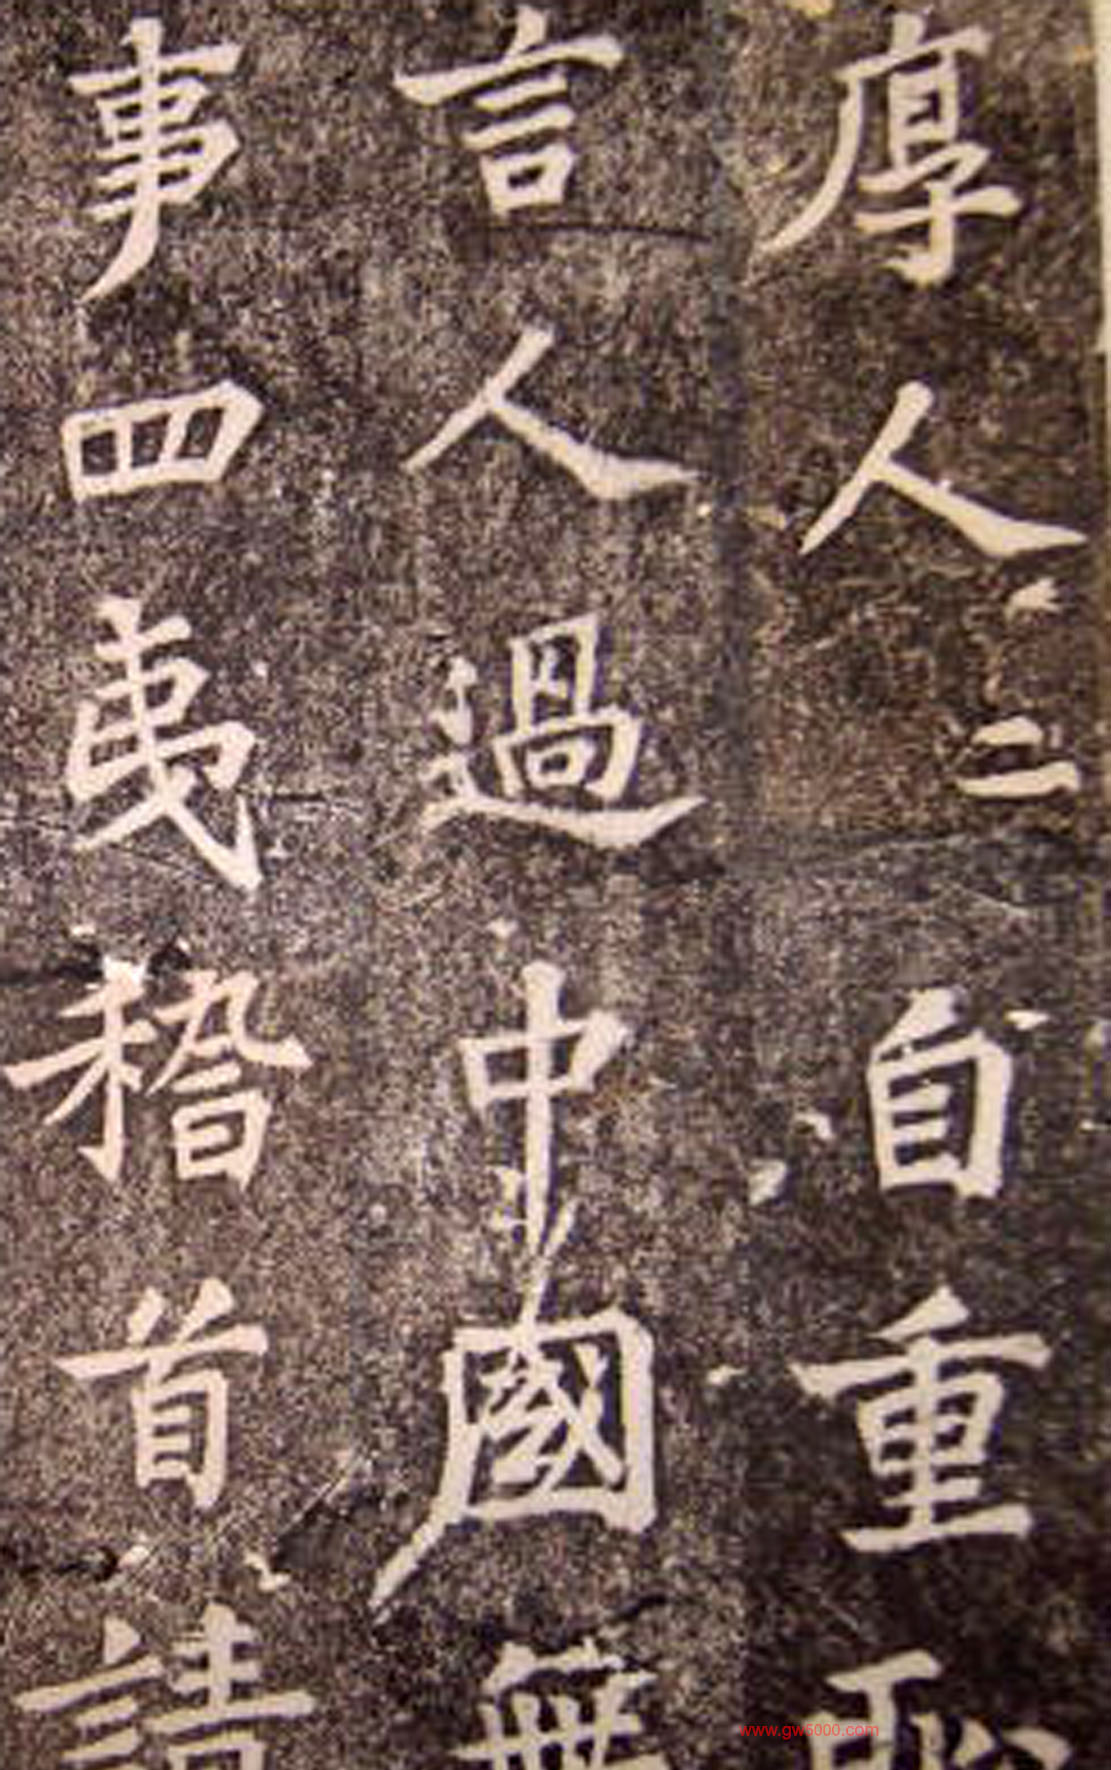 厚人人自重恥
言人過中國無
事四夷稽首請
www.gw5000.com